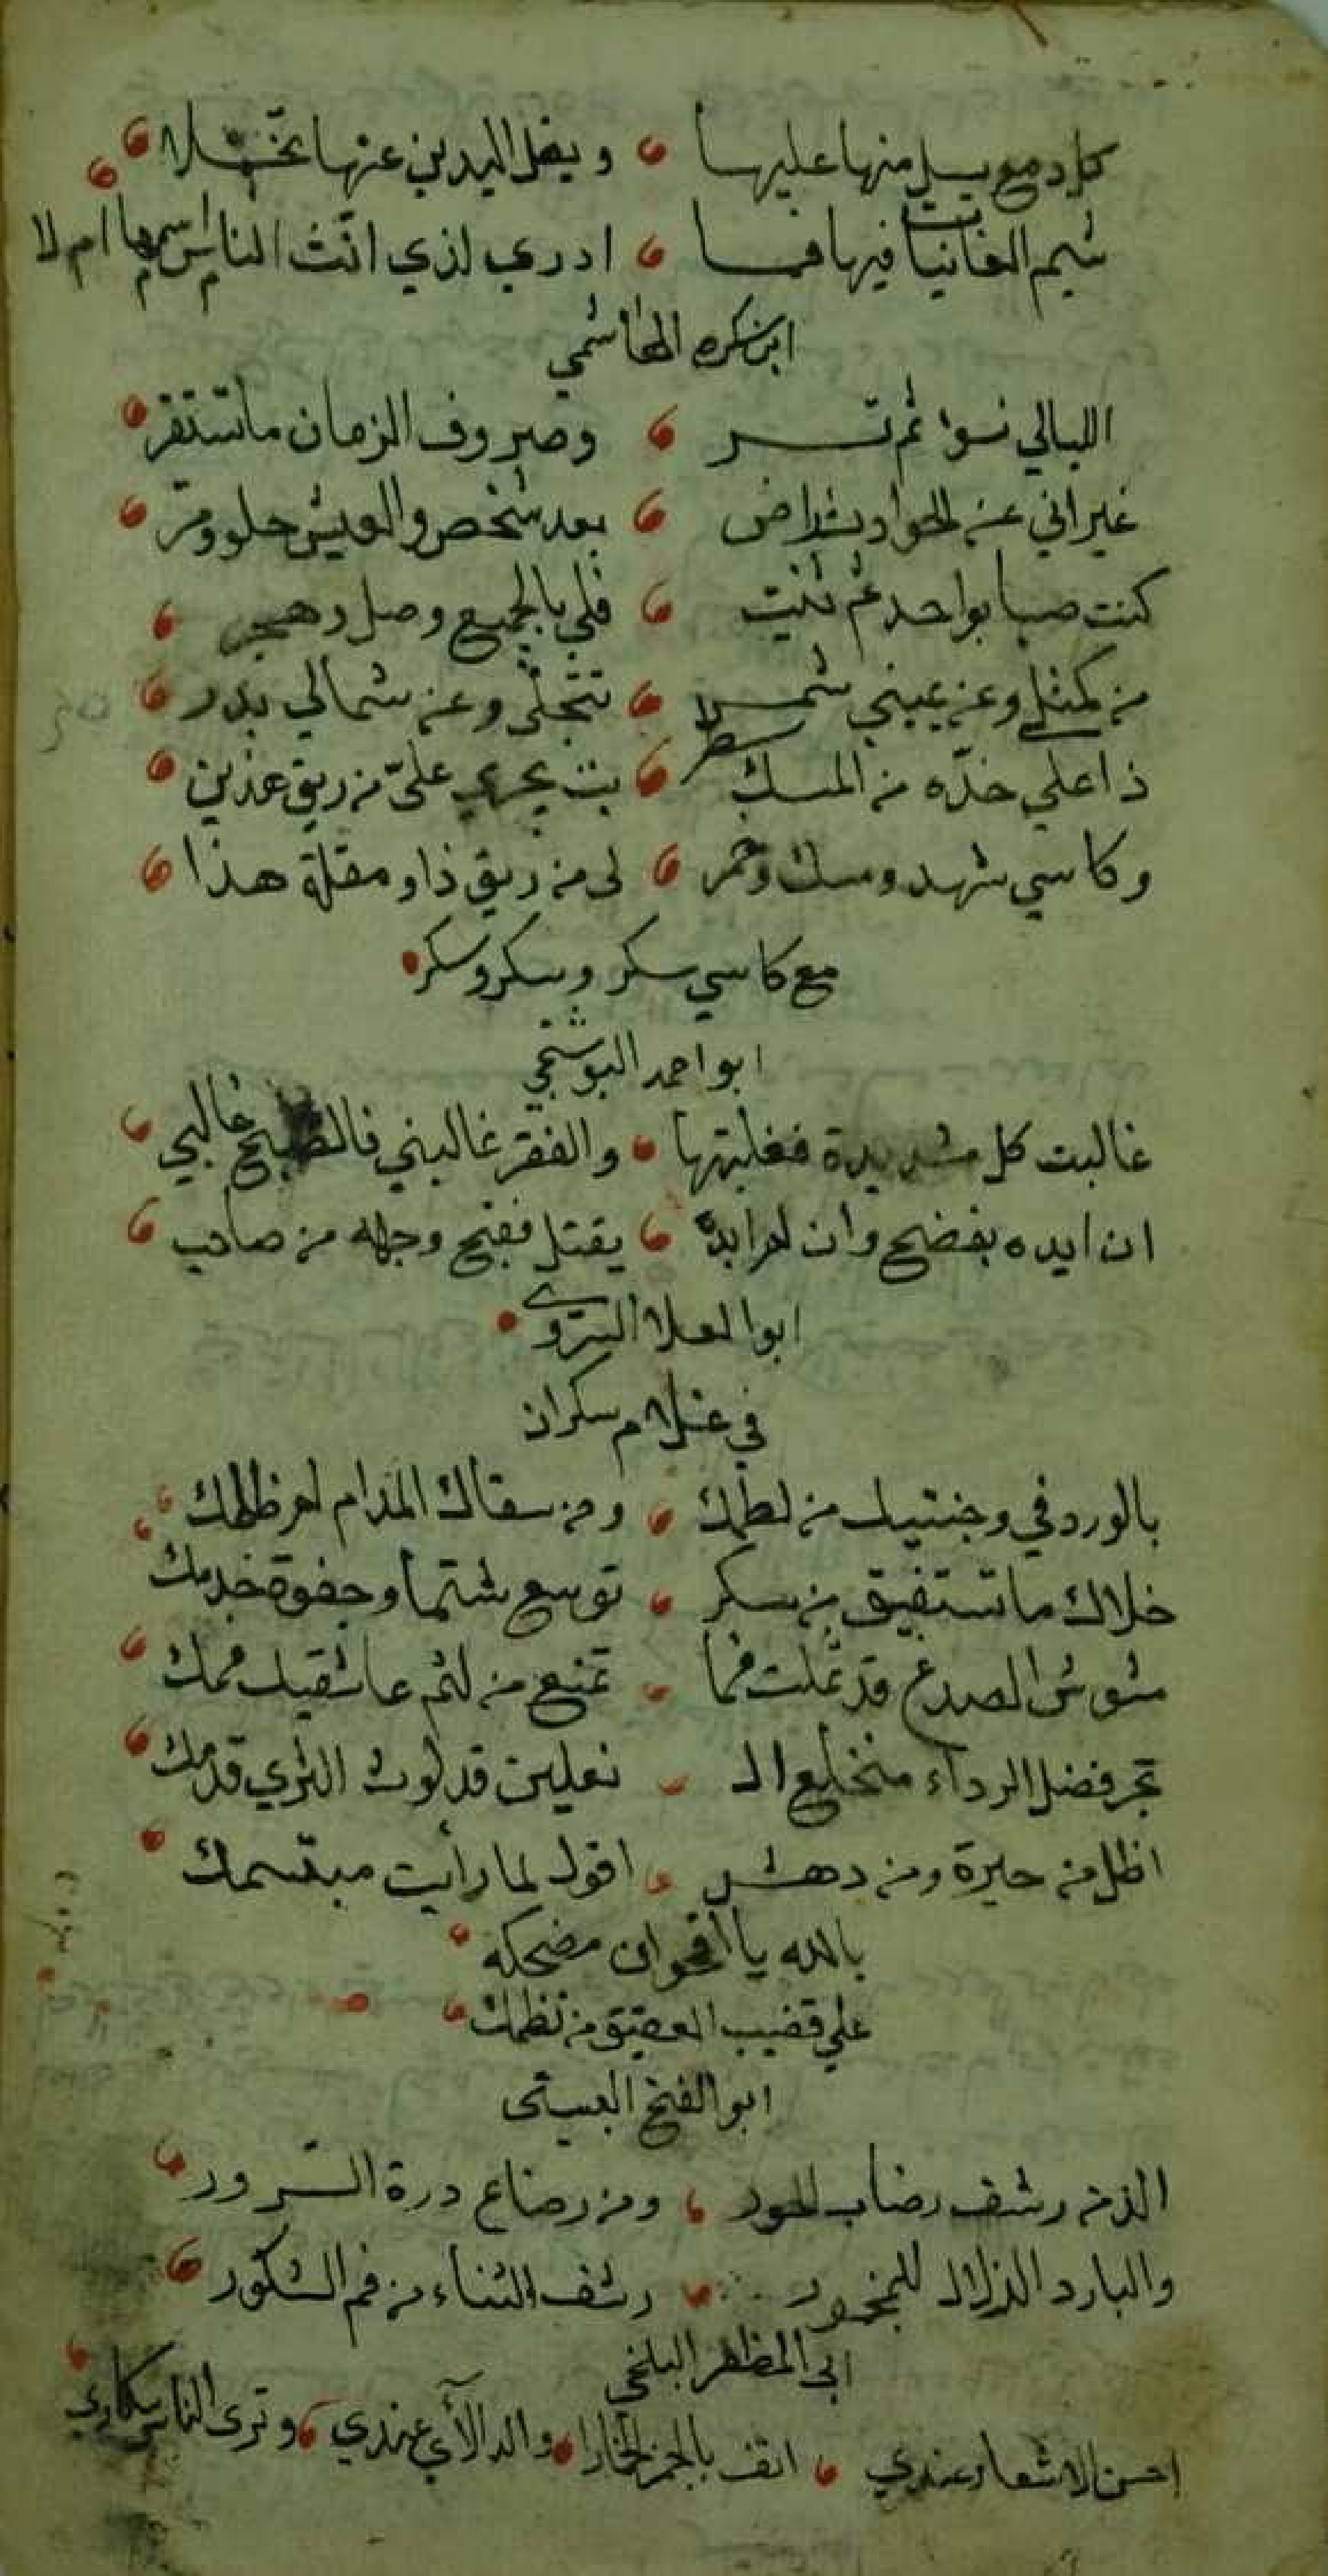 كل دمع يسيل منها عليها ويفل اليدين عنها تخلا
شيم الغانيات فيها فما ادري لذي انّث الناس اسمها ام لا
ابن سكره الهاشمي
الليالي تسوء ثم تسر وصروف الزمان ما تستقر
غير اني عن الحوادث راض بعد سخص والعيش حلو ومرّ
كنت صبا بواحد ثم ثنيت فلي بالجميع وصل وهجر
من كمثلي وعن يميني شمس تتجلّى وعن شمالي بدر
ذا علي خدّه من المسك سطر بت يجري عليّ من ريق عذبن
وكاسي شهد ومسك وخمر لي من ريق ذا ومقلة هذا
مع كاسي سكر وسكر وسكر
ابو احمد البوشنجي
غالبت كل شديدة فغلبتها والفقر غالبني فاصبح غالبي
ان ابده يفضح وان لم ابده يقتل فقبح وجهه من صاحب
ابو العلا السروي
في غلام سكران
بالورد في وجنتيك من لطمك ومن سقاك المدام لم ظلمك
خلاك ما تستفيق من سكر توسع شتما وجفوة خدمك
مشوش الصدغ قد ثملت فما تمنع من لثم عاشقيك فمك
تجر فضل الرداء منخلع الـ نعلين قد لوث الثري قدمك
اظل من حيرة ومن دهش اقول لما رأيت مبتسمك
بالله يا اقحوان مضحكه
علي قضيب العقيق من نظمك
ابو الفتح البستي
الذ من رشف رضاب الحور ومن رضاع درة السرور
والبارد الزلال للمخمور رشف الثناء من فم الشكور
ابي المظفر البلخي
احسن الاشعار عندي انف بالخمر الخمارا والد الآي عندي وترى الناس سكارى